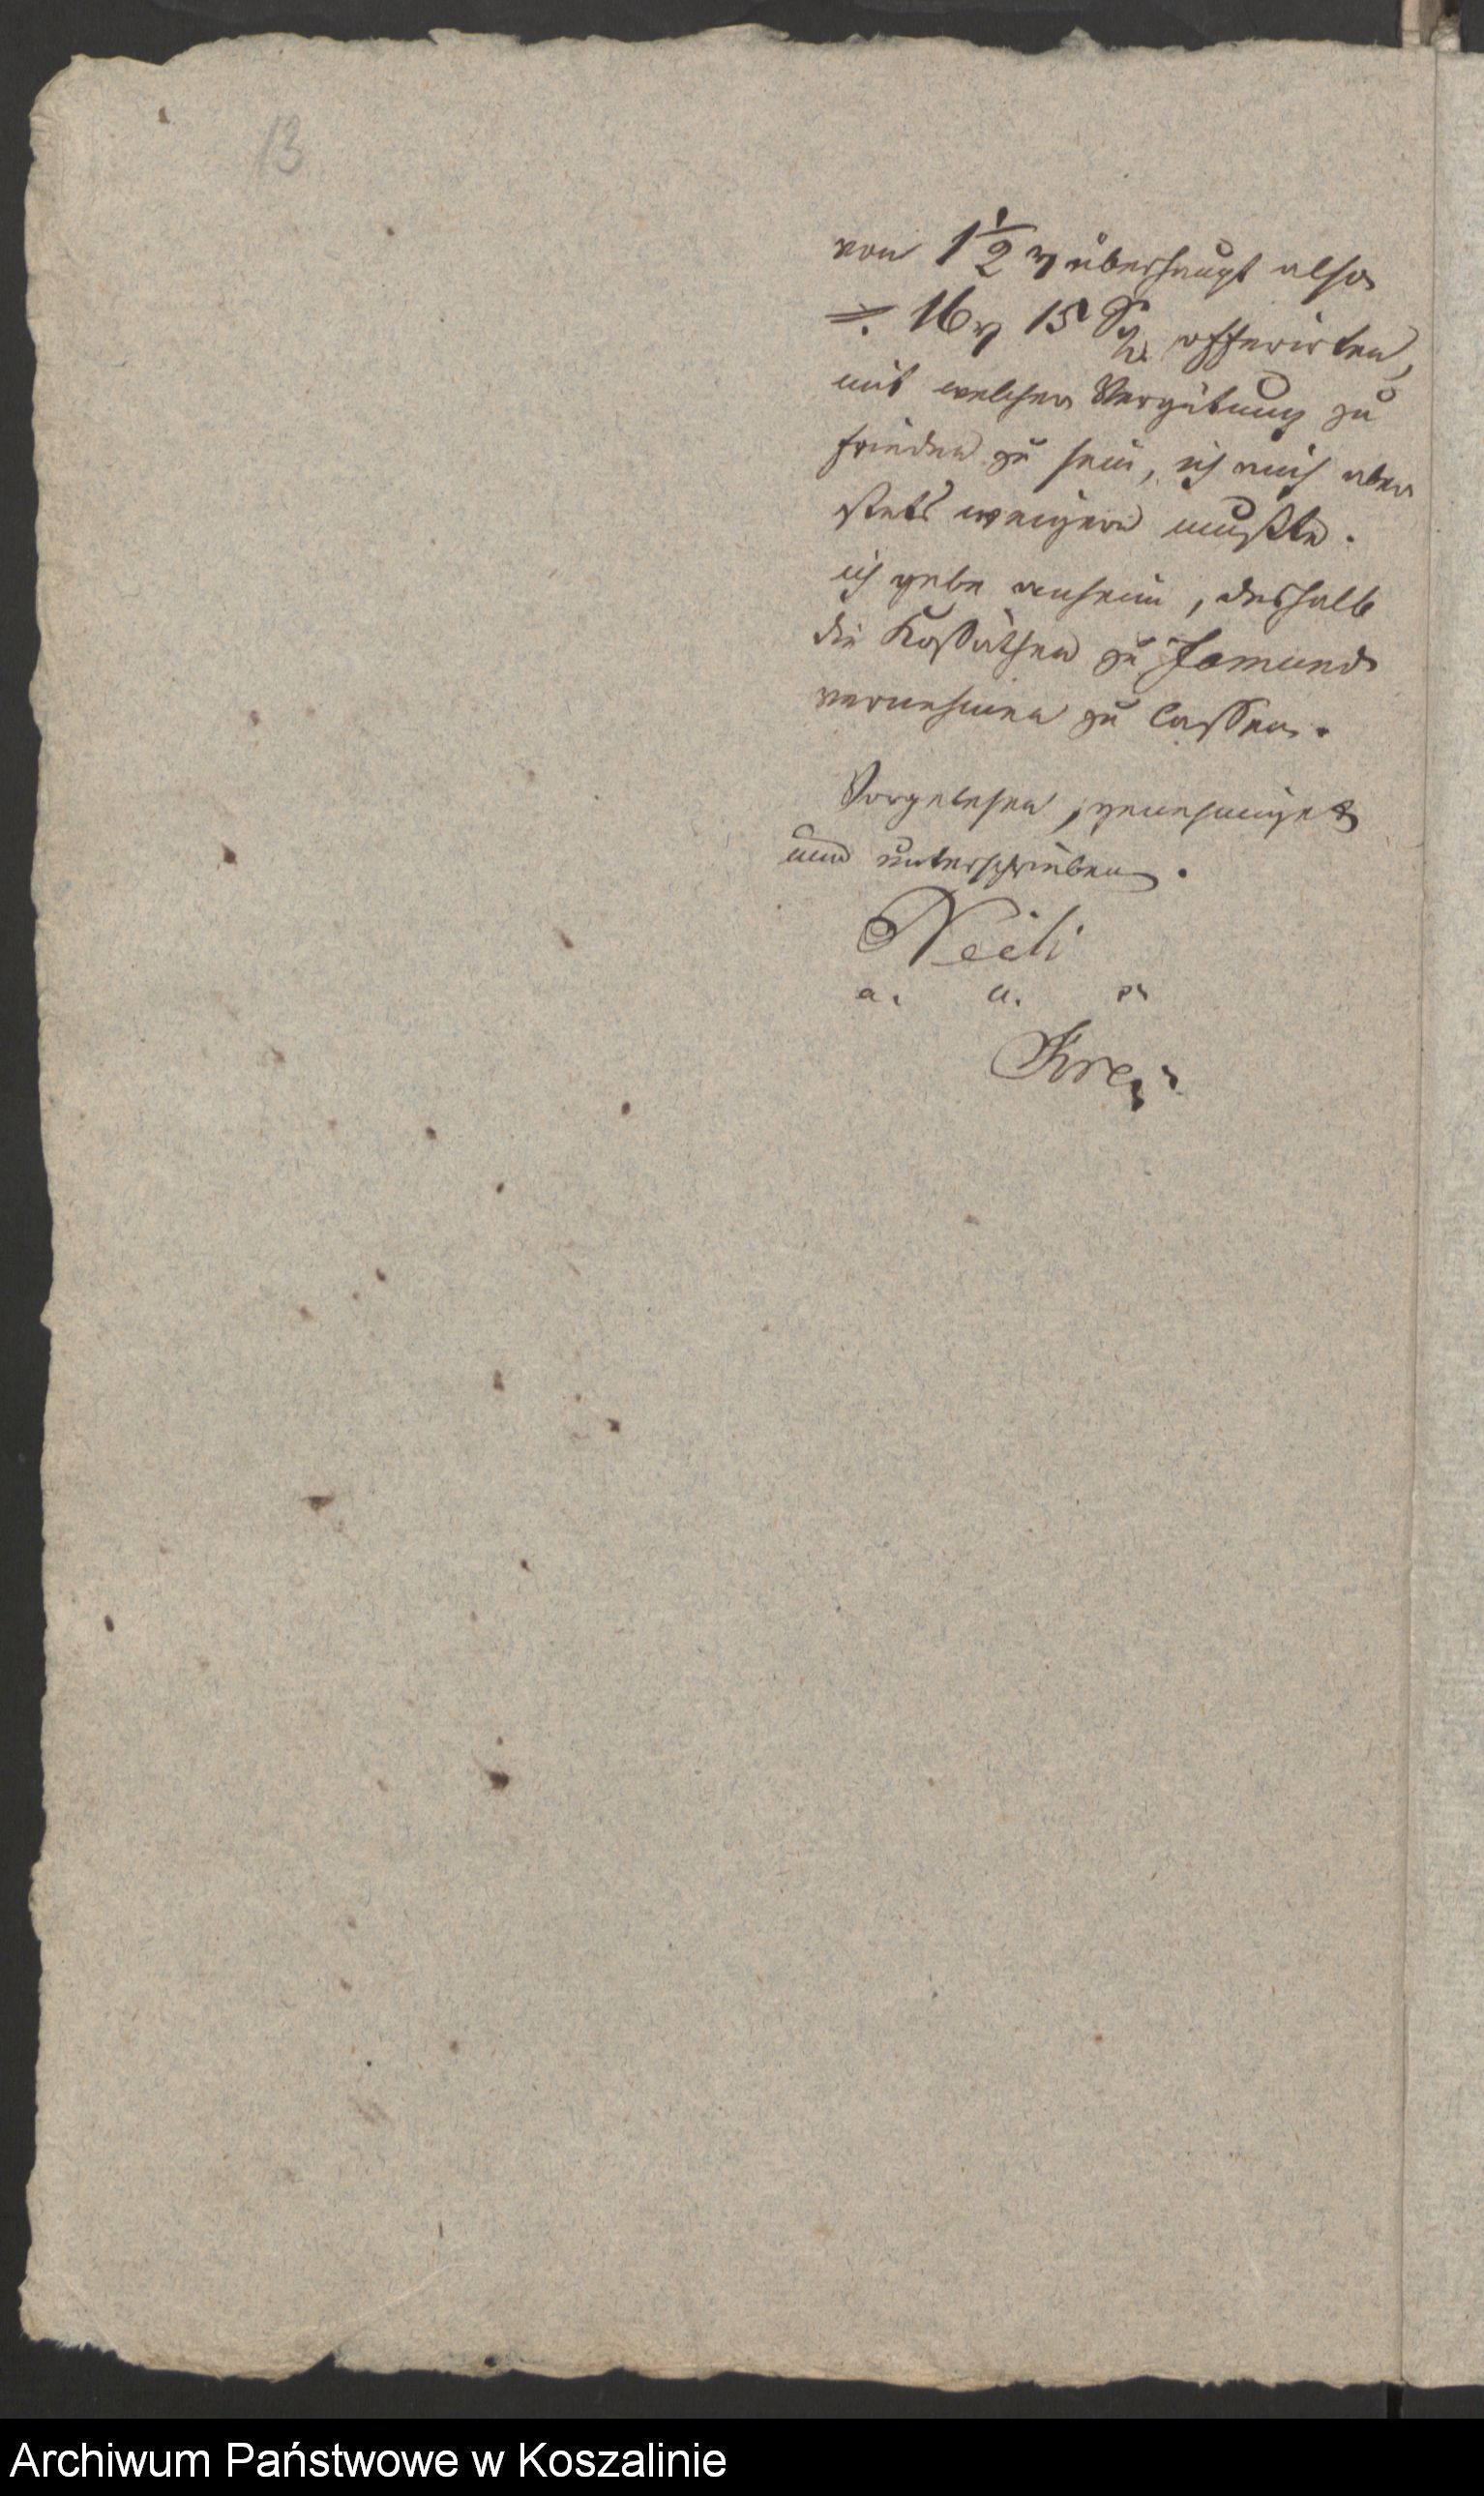 13
von 1 1/2 rℓ überhaupt also
16 rℓ 15 Sg offerirten,
mit welcher Vergütung zu
frieden zu sein, ich mich aber
stets weigern mußte.
ich gebe anheim, deshalb
die Kossäthen zu Jamund
vernehmen zu lassen.
Vorgelesen, genehmiget
und unterschrieben.
a. u. s.
Archiwum Państwowe w Koszalinie